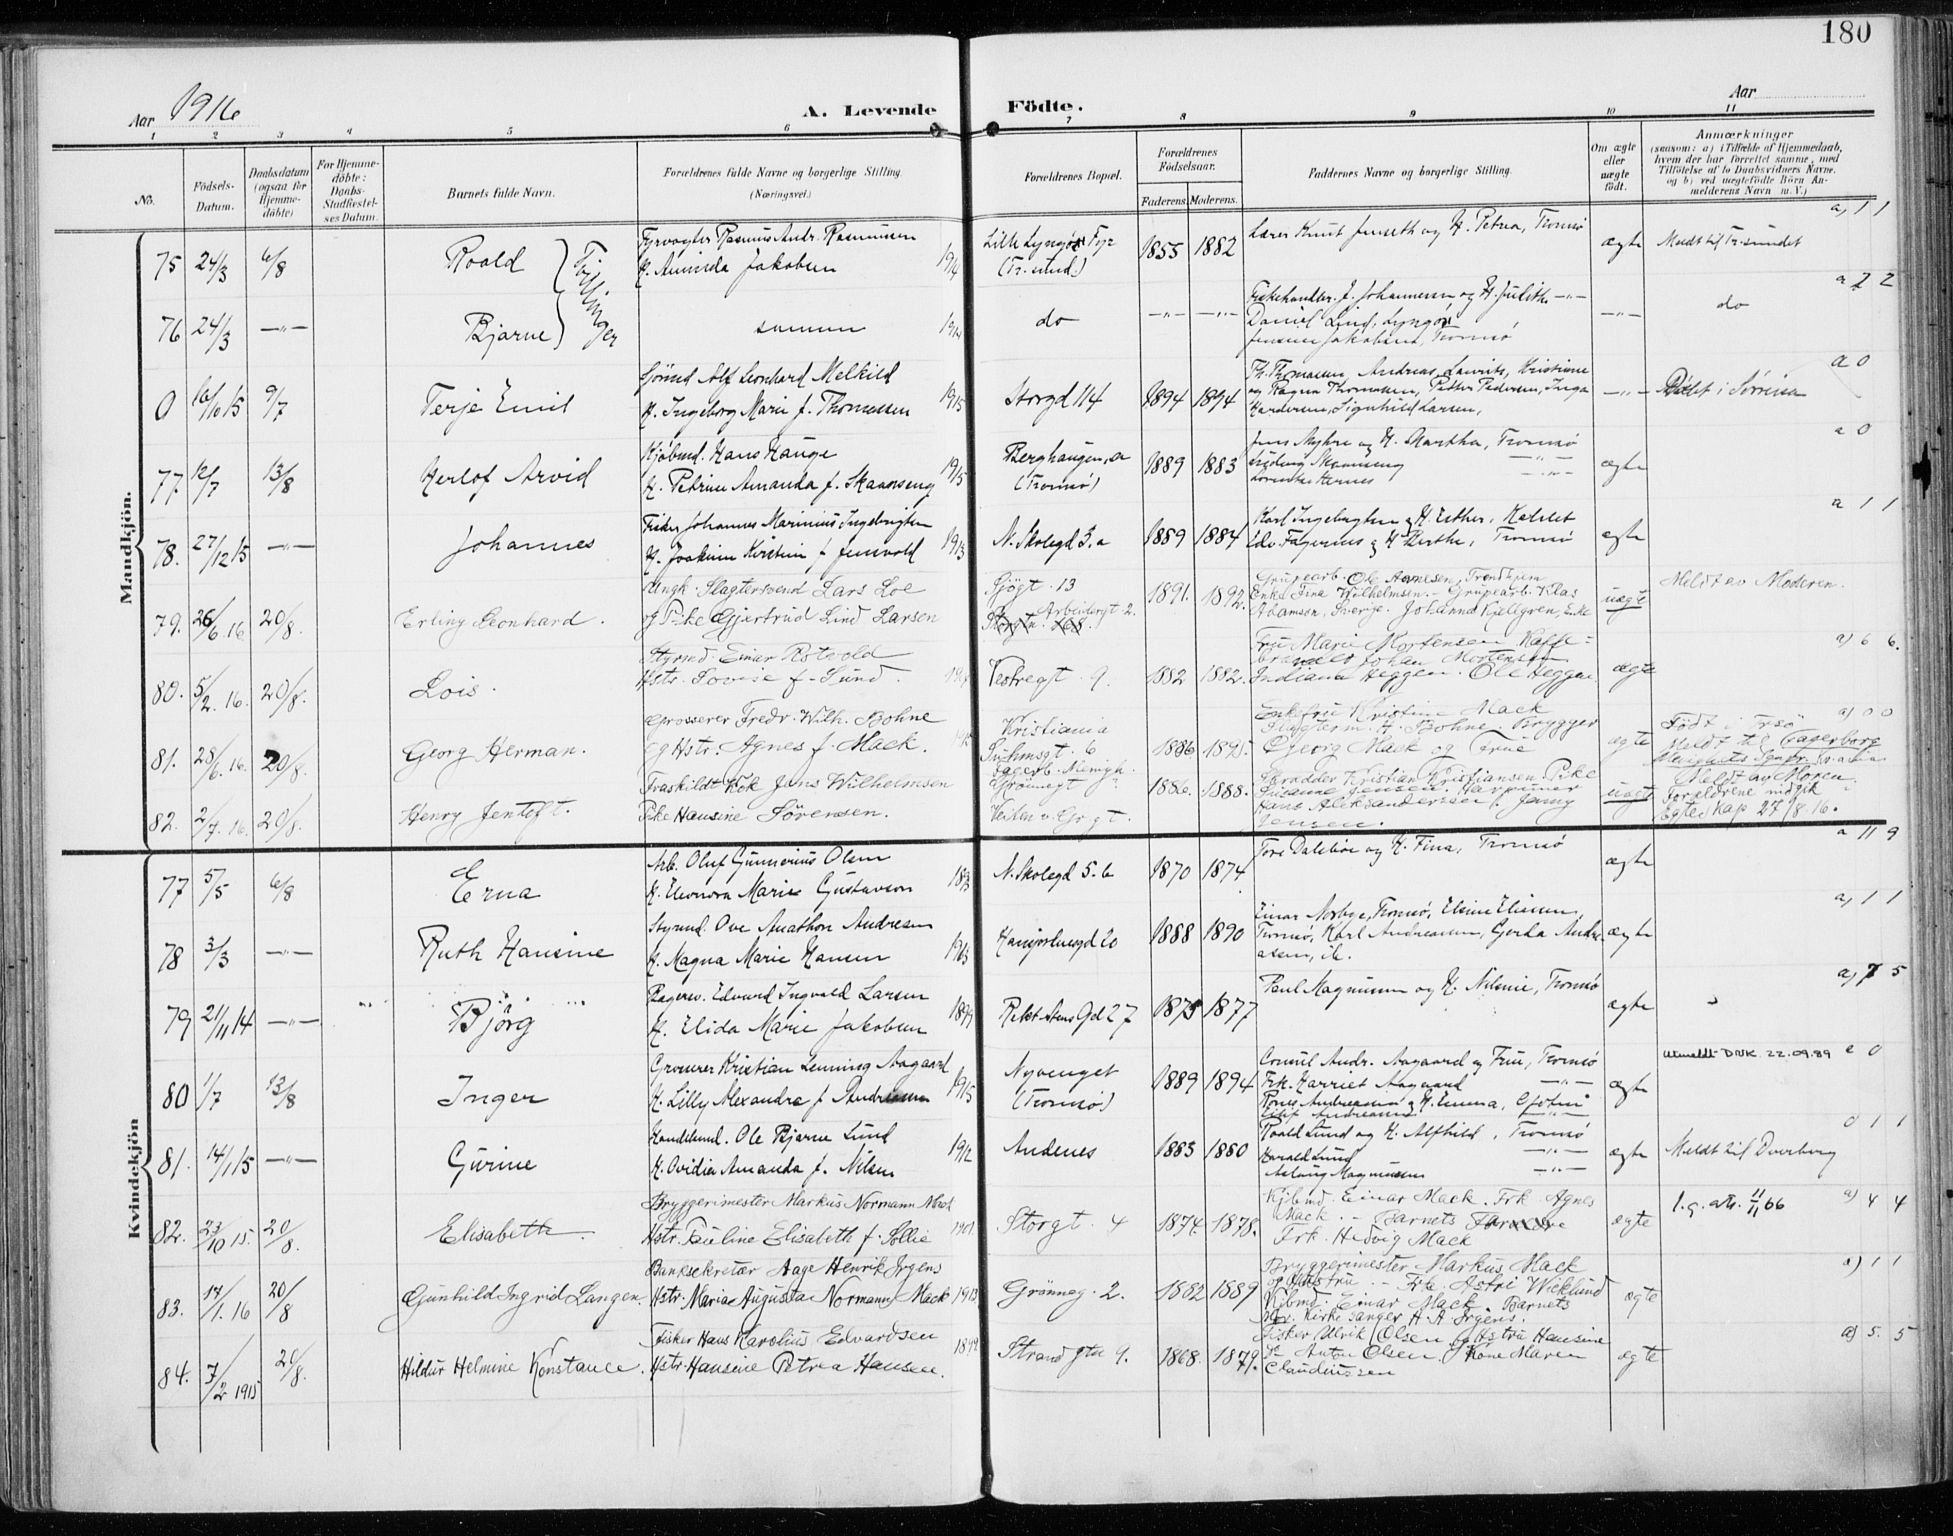 180
Aar 1916
A. Levende Födte.
Aar
1 2 3 4 5 6 7 8 9 10 11
No.
Födsels-Datum.
Daabsdatum (ogsaa for Hjemme-döbte)
For Hjemme-döbte: Daabs-Stadfæstel-ses Datum.
Barnets fulde Navn.
Forældrenes fulde Navne og borgerlige Stilling. (Næringsvei.)
Forældrenes Bopæl.
Forældrenes Födselsaar.
Faderens. Moderens.
Faddernes Navne og borgerlige Stilling.
Om ægte eller uægte födt.
Anmærkninger
(saasom: a) i Tilfælde af Hjemmedaab, hvem der har forrettet samme, med Tilföielse af to Daabsvidners Navne, og b) ved uægtefödte Börn An-melderens Navn m. V.)
Mandkjön.
75 24/3 6/8 Roald Tvillinger
Fyrvogter Rasmus Andr. Rasmussen
H. Jakobsen 1914
Lille Lyngö Fyr
(Tr.sund.)
1855 1882
Lærer Knut og H. Petrea, Tromsö
ægte Meldt til Tr.sundet a) 1 1
76 24/3 —"— Bjarne
samme
do —"— —"—
Fiskehandler J. Johannesen og H. —"—
Daniel Lind, Lyngö
Jakobsen, Tromsö
—"— do 2
0 16/10 15 9/7 Terje Emil
Sjömd Alf Leonhard Melkild
H. Ingeborg Marie f. Thomassen 1915
Storgd 114 1894 1894
Th. Thomassen, Andreas, Laurits, Kristiane
og Ragna Thomassen, Petter Pedersen, Inga
Signhild Larsen,
—"— Döbt i Sörreisa a 0
77. 12/7 13/8 Herlof Arvid
Kjöbmd. Hans Hauge
H. Petrine Amanda f. 1915
Berghaugen,
(Tromsö)
1889 1883
Jens Myhre og H. Martha, Tromsö
—"—
—"—
ægte a 0
78. 27/12 15 —"— Johannes
Fisker Johannes Marinius Ingebrigtsen
H. Joakime Kristine f. 1913
N. Skolegd 3.a 1889 1884
Karl Ingebrigtsen og H. Esther,
Edv. Fagernes og H. Berthe, Tromsö
ægte a 1 1
79. 26/6. 16 20/8. Erling Leonhard.
Ungk. Slagtersvend Lars Loe
og Pike Gjertrud Lind Larsen
Sjögt. 13
Arbeidergt 2.
1891. 1892.
Grupearb. Ole Arnesen, Trondhjem
Enke Fina Wilhelmsen. - Grupearb. Klas
Adamsen, Sverge. Johanna Kjellgren, Enke
uægte Meldt av Moderen.
80. 5/2. 16. 20/8. Lois.
Styrmd. Einar Rotvold
Hstr. Lovise f. Lund.
Vestregt. 9. 1882 1882.
Fru Marie Mortensen Kaffe=
brænder Johan Mortensen
Indiana Heggen. Ole Heggen
ægte a) 6 6.
81. 28/6. 16. 20/8. Georg Herman.
Grosserer Fredr. Wilh. Bohne
og Hstr. Agnes f. Mack.
Kristiania
Suhmsgt. 6
Fagerb. Menigh.
1886 1895.
Enkefru Kristine Mack
Slagterm. H. Bohne. Brygger
Georg Mack og Frue
ægte Född i Trsö
Meldt til Fagerborg
Menighets Spr. Kr.ania
a) 0 0
82. 2/7. 16. 20/8. Henry Jentoft.
Fraskildt Kok Jens Wilhelmsen
Pike Hansine Sörensen.
Grönnegt
Veiten v. Gr gt.
1886. 1888.
Skrædder Kristian Kristiansen. Pike
Susanne Jensen. Harpuner
Hans Aleksandersen. Jenny
Jensen.
uægt Meldt av Moren.
Forældrene indgik
Egteskap 27/8. 16.
Kvindekjön
77 5/5 6/8 Erna
Arb. Oluf Gunnerius Olsen
H. Eleonora Marie Gustavson
N. Skolegd 5.b 1870 1874
Tore Dalebø og H. Fina, Tromsö
ægte a 11 9
78 3/3 —"— Ruth Hansine
Styrmd. Ove Anathon Andresen
H. Magna Marie Hansen
20 1888 1890
Einar Norbye, Tromsö, Elsine
Tromsö, Karl Andreassen, Gerda Andre-
asen, ib.
ægte a) 1 1
79 21/11 14 —"— Björg
Bagersv. Edvard Ingvald Larsen
H. Elida Marie Jakobsen 1899
27 1875 1877
Paul Magnussen og H. Nilsine, Tromsö
ægte a) 7 5
80 1/7 13/8 Inger
Grosserer Kristian Lenning Aagaard
H. Lilly Alexandra f. Andreassen 1915
Nyvenget
(Tromsö)
1889 1894
Consul Andr. Aagaard og Frue, Tromsö
Frk. Harriet Aagaard —"—
Andreassen og H. Emma,
Andreassen —"—
ægte Utmeldt DNK 22.09.89 0
81. 14/1 15 —"— Gurine
Handelsmd. Ole Bjarne Lund
H. Ovidia Amanda f. Nilsen 1912
Andenes 1883 1880
Roald Lund og H. Alfhild, Tromsö
Harald Lund —"—
Aslaug Magnussen —"—
ægte Meldt til Dverberg 1 1
82. 23/10 15. 20/8. Elisabeth.
Bryggerimester Markus Normann Mack
Hstr. Pauline Elisabeth f. Sollie 1901
Storgt. 4 1874. 1878.
Kjbmd. Einar Mack. Frk. Agnes
Mack. - Barnets Forældre
Frk. Hedvig Mack
ægte 11/11 66 a) 4 4
83. 14/1. 16 20/8 Gunhild Ingrid Langen.
Banksekretær Aage Henrik Jrgens
Hstr. Maria Augusta Normann Mack 1913
Grönneg. 2. 1882 1889
Bryggerimester Markus Mack
og Hustru - Frk. Astri Wicklund
Kjbmd. Einar Mack. Barnets
Mor. Kirkesanger H. A. Jrgens.
ægte a) 1 1
84. 7/2 1915 20/8. Hildur Helmine Konstance.
Fisker Hans Karolius Edvardsen
Hstr. Hansine Petra Hansen.
Strandgtn 9. 1868. 1879.
Fisker Ulrik Olsen og Hstru Hansine
Anton Olsen. Kone Maren
Claudiussen
ægte a) 5. 5